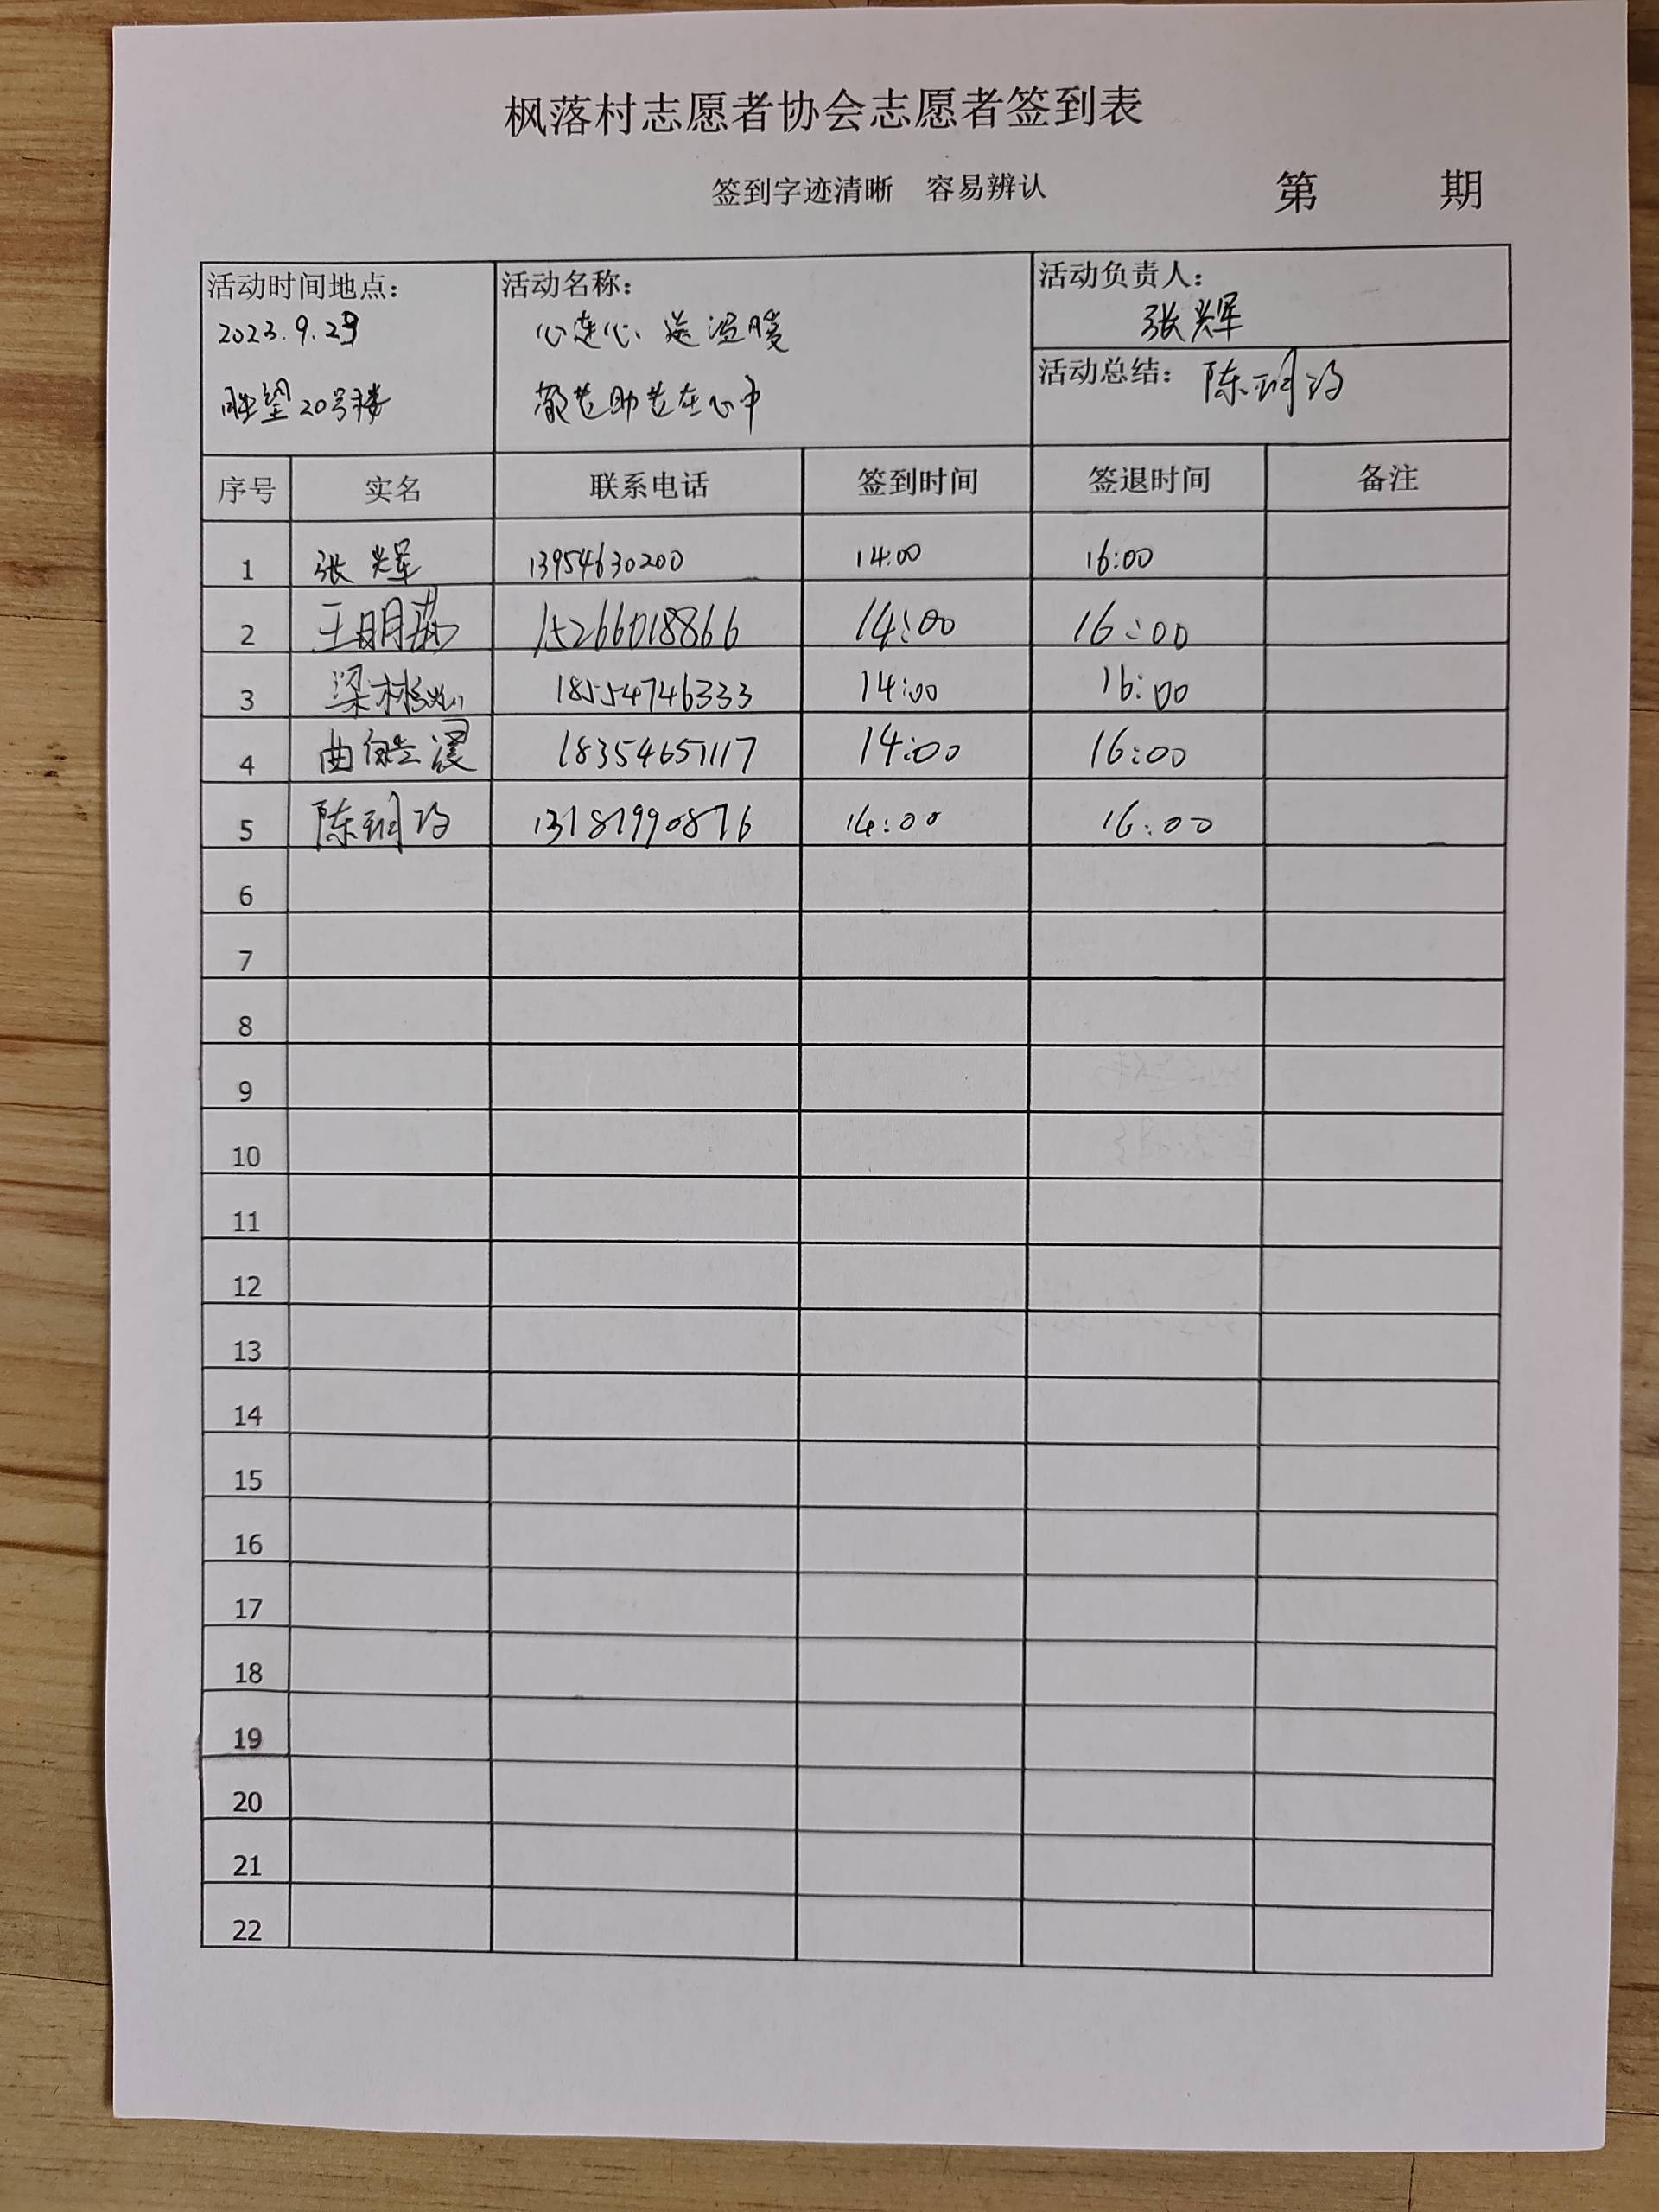 枫落村志愿者协会志愿者签到表
签到字迹清晰 容易辨认 第 期
活动时间地点: 活动名称: 活动负责人:
2023.9.29 心连心 送温暖 张辉
活动总结: 陈
眺望20号楼 敬老助老在心中
序号 实名 联系电话 签到时间 签退时间 备注
1 张辉 13954630200 14:00 16:00
2 王明 15266018866 14:00 16:00
3 梁彬 18554746333 14:00 16:00
4 曲 18354651117 14:00 16:00
5 陈 13181990876 14:00 16:00
6
7
8
9
10
11
12
13
14
15
16
17
18
19
20
21
22